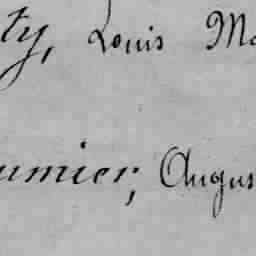 ty, Louis Ma
umier, Augus